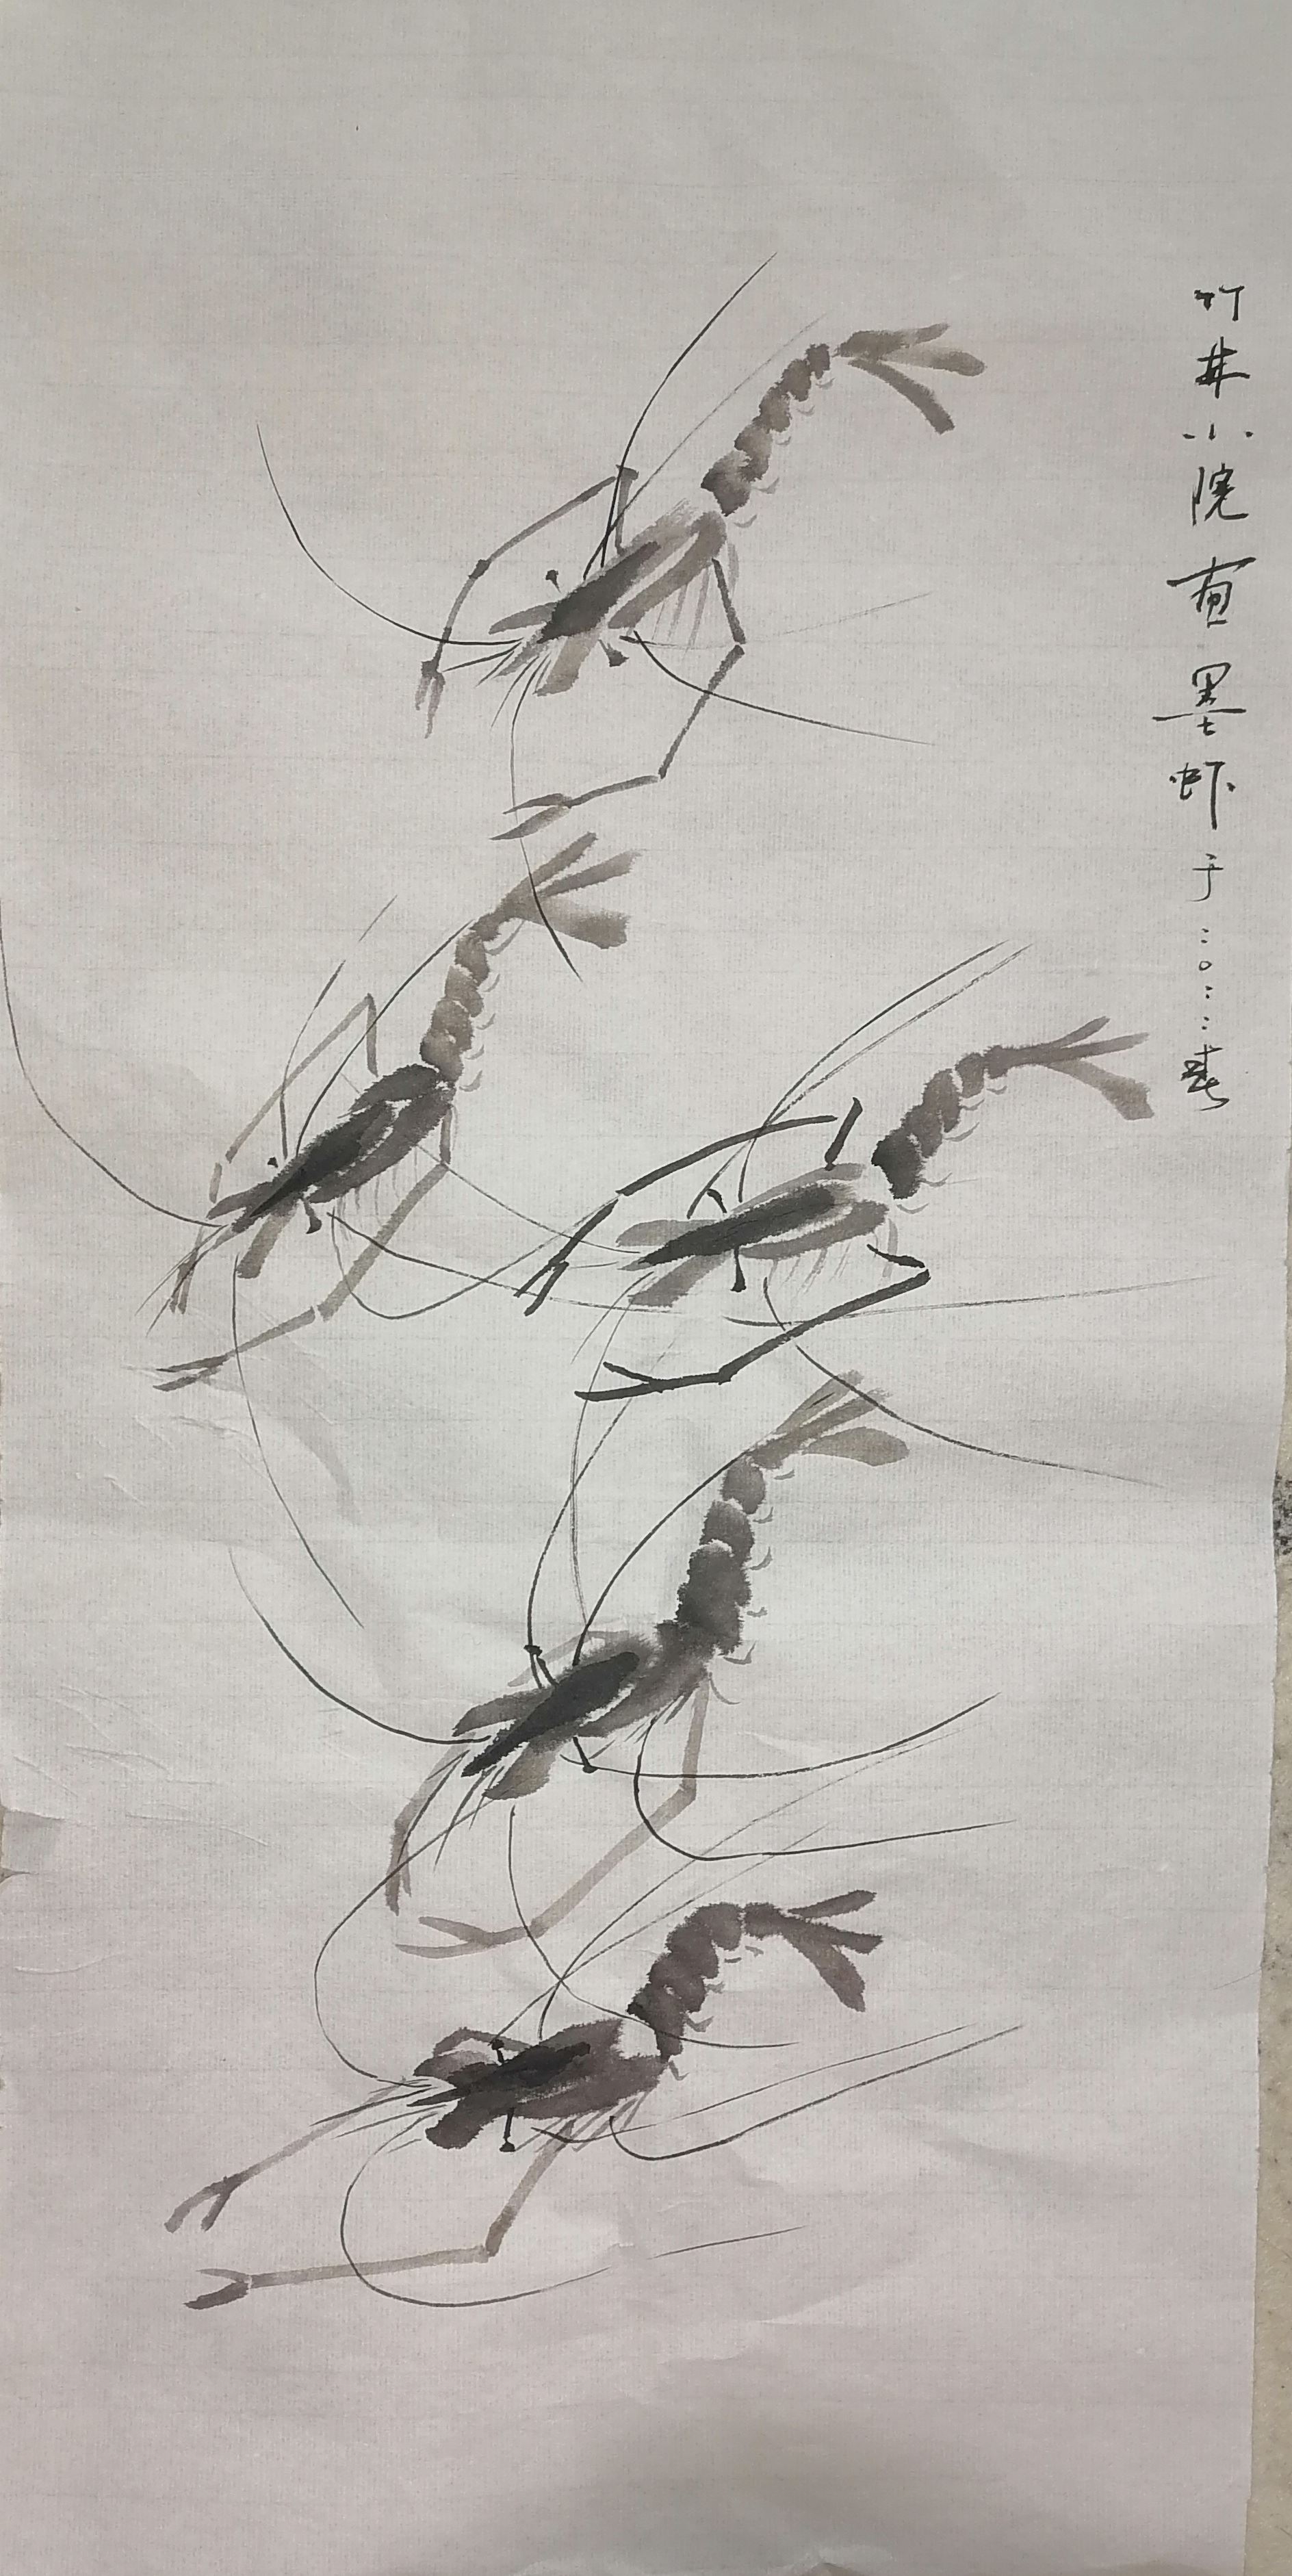 竹井小院画墨虾于二〇二二春